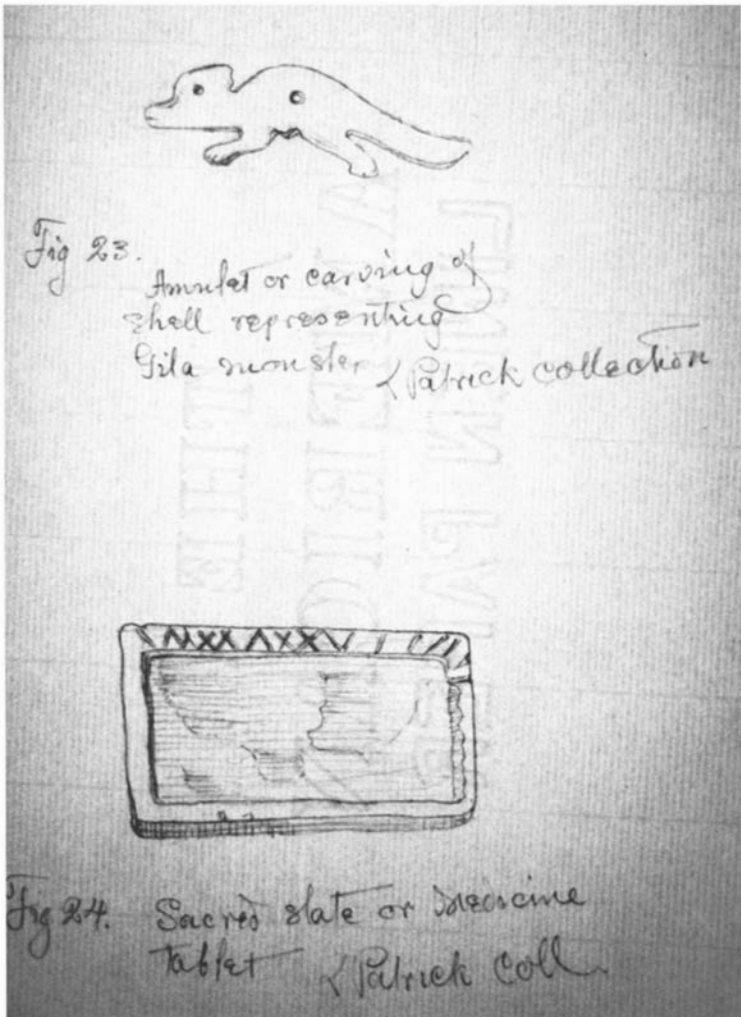 Fig 23.
Amulet or carving of
shell representing
Gila monster < Patrick collection
Fig 24. Sacred slate or Medicine
Tablet < Patrick Coll.